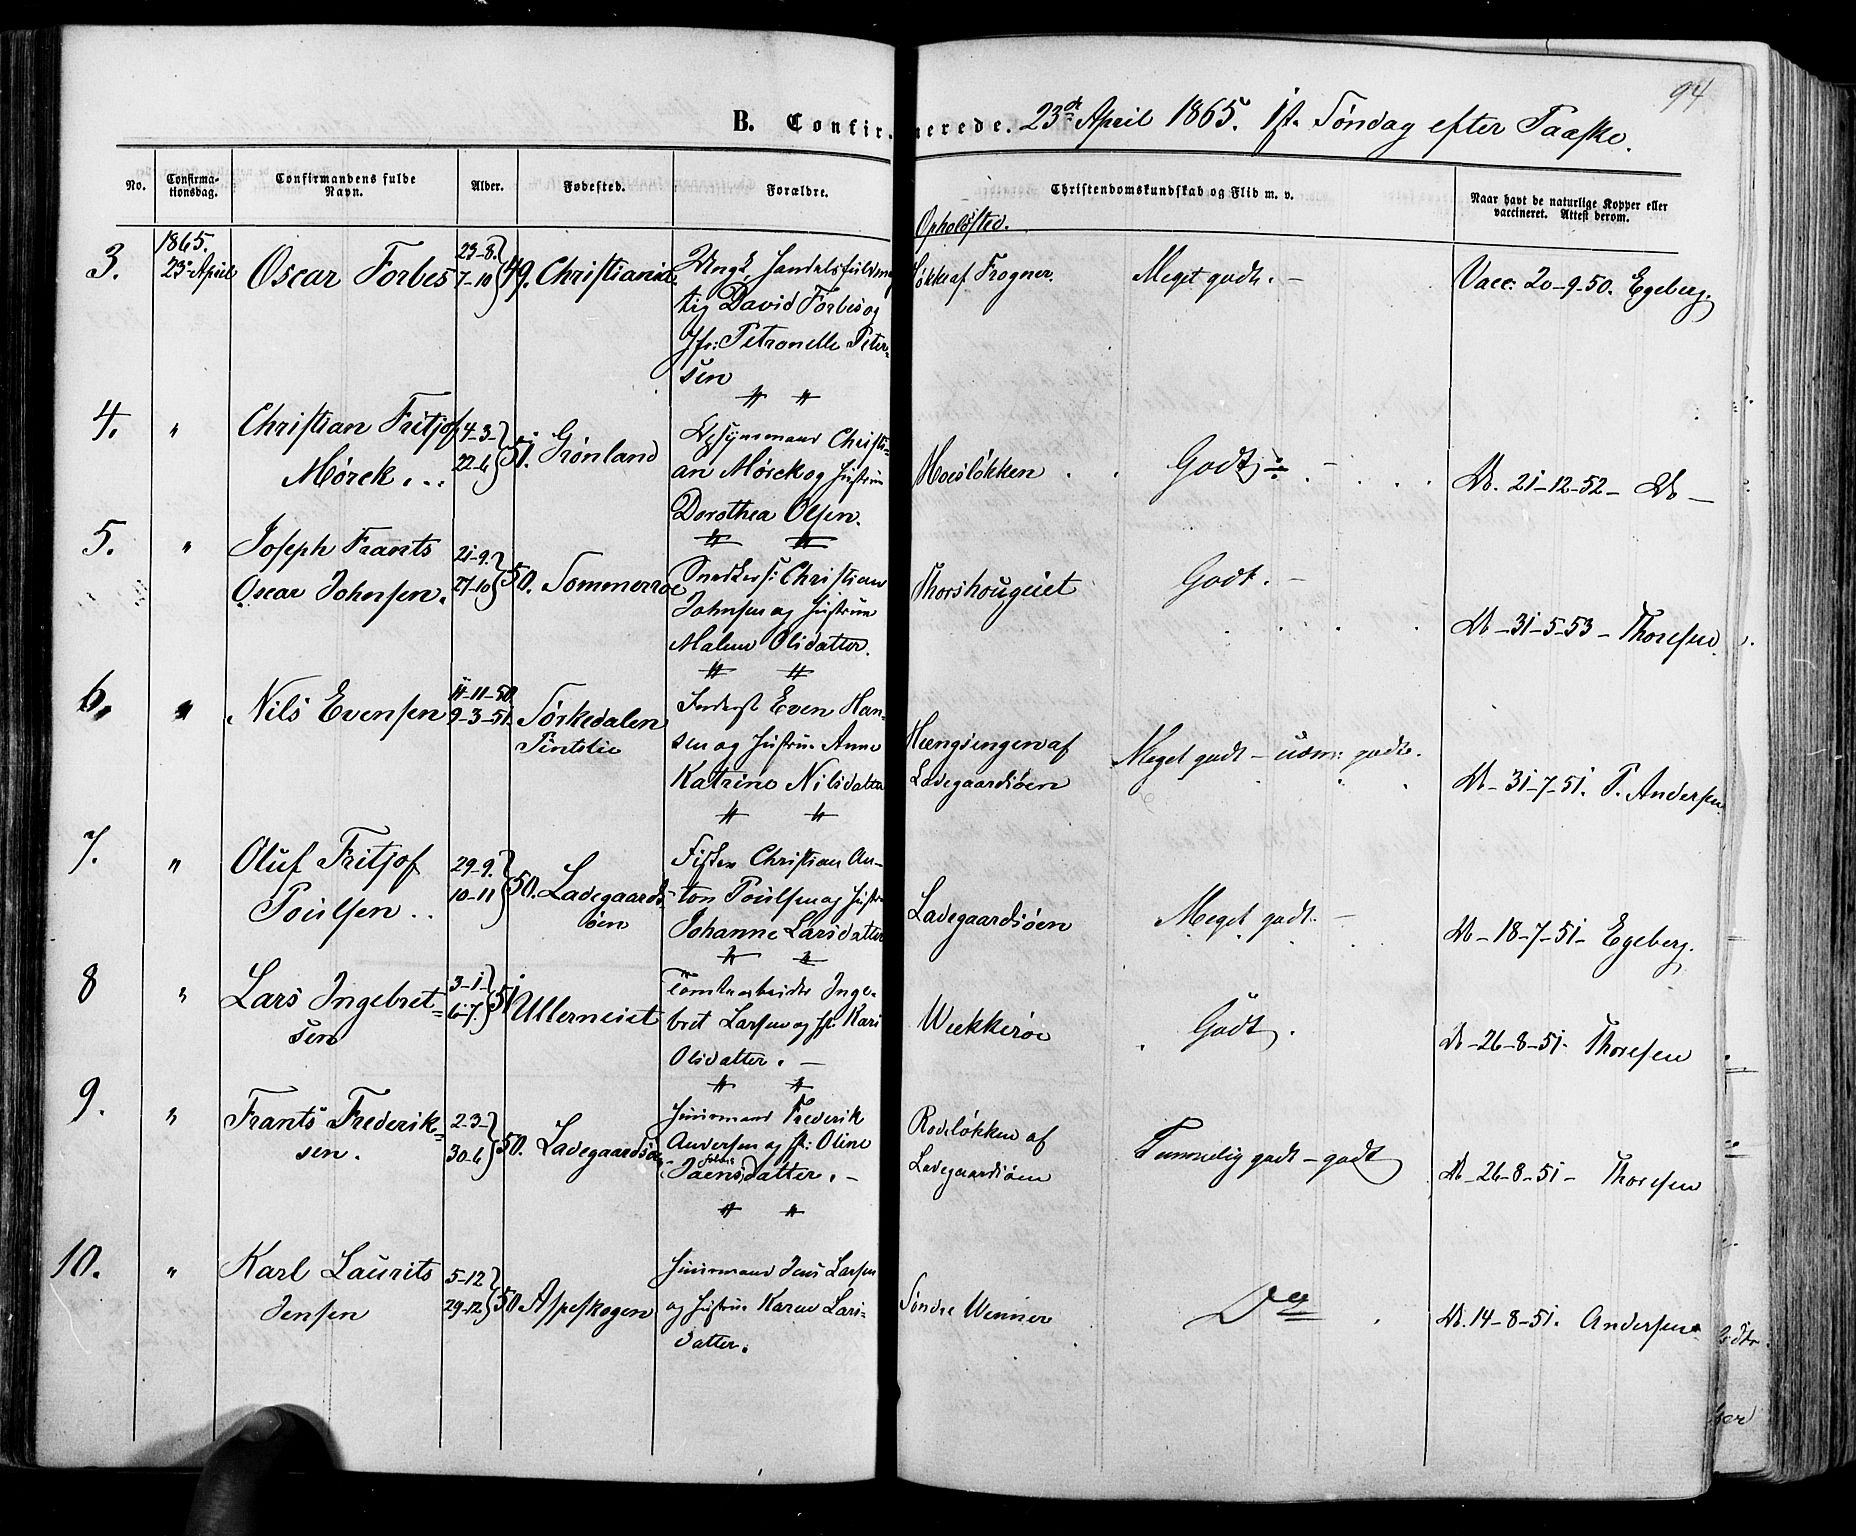 94
B. Confirmerede. 23de April 1865. 1st. Søndag efter Paaske.
No.
Confirma-
tionsdag.
Confirmandens fulde
Navn.
Alder.
Fødested.
Forældre.
Christendomskundskab og Flid m. v.
Naar havt de naturlige Kopper eller
vaccineret. Attest derom.
Opholdsted.
3.
1865.
23de April
Oscar Forbes
23-8.
7-10
49.
Christiania.
Ungk. Handelsfuldmæg-
tig David Forbes og
Jfr: Petronelle Peter-
sen
Løkke af Frogner.
Meget godt. –
Vacc: 20-9-50. Egeberg.
4.
"
Christian Fritjof
Mørck. ..
4-3-
22-6
51.
Grønland
Opsynsmand Christi-
an Mørck og Hustrue
Dorothea Olsen.
Moesløkken
Godt
Do. 21-12-52 – Do –
5.
"
Joseph Frants
Oscar Johnsen.
21-9.
27-10
50.
Sommerroe
Snedkers: Christian
Johnsen og Hustrue
Malene Olsdatter.
Thorshouguet
Godt. –
Do – 31-5-53 – Thoresen.
6.
"
Nils Evensen
11-11-50
9-3-51.
Sørkedalen
Pintslie
Inderst Even Han-
sen og Hustrue Anne
Katrine Nilsdatter
Hengsengen af
Ladegaardsøen
Meget godt – udm: godt.
Do – 31-7-51. P. Andersen
7.
"
Oluf Fritjof
Poulsen ..
29-9.
10-11
50.
Ladegaards-
øen
Fisker Christian An-
ton Poulsen og Hustr:
Johanne Larsdatter
Ladegaardsøen
Meget godt. –
Do – 18-7-51 – Egeberg.
8
"
Lars Ingebret-
sen
3-1-
6-7.
51
Ullerneiet
Tomtearbeider Inge-
bret Larsen og H: Kari
Olsdatter. –
Wækkerøe
Godt.
Do – 26-8-51. Thoresen
9.
"
Frants Frederik-
sen.
2-3-
30-6
50.
Ladegaardsøen
Huusmand Frederik
Andersen og H: Oline
Jaensdatter. –
Rodeløkken af
Ladegaardsøen
Temmelig godt – godt
Do – 26-8-51 – Thoresen
10.
"
Karl Laurits
Jensen
5-12
29-12
50
Aspeskogen
Huusmand Jens Larsen
og Hustrue Karen Lars-
datter.
Søndre Wenner
Do
Do. 14-8-51. Andersen